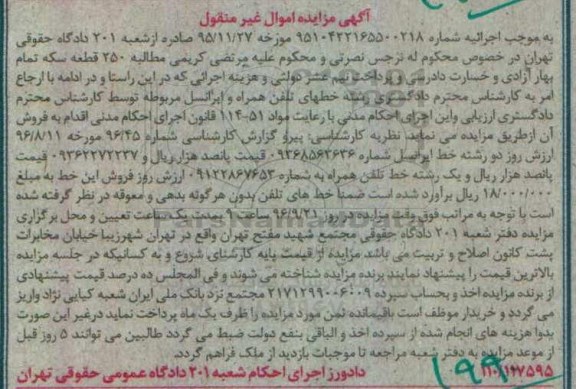 آگهی مزایده اموال غیر منقول
به موجب اجرائیه شماره ۹۵۱۰۴۲۲۱۶۵۵۰۰۲۱۸ مورخه ۹۵/۱۱/۲۷ صادره ازشعبه ۲۰۱ دادگاه حقوقی
تهران در خصوص محکوم له نرجس نصرتی و محکوم علیه مرتضی کریمی مطالبه ۲۵۰ قطعه سکه تمام
بهار آزادی و خسارت دادرسی و پرداخت نیم عشر دولتی و هزینه اجرائی که در این راستا و در ادامه با ارجاع
امر به کارشناس محترم دادگستری رشته خطهای تلفن همراه و ایرانسل مربوطه توسط کارشناس محترم
دادگستری ارزیابی واین اجرای احکام مدنی با رعایت مواد ۵۱-۱۱۴ قانون اجرای احکام مدنی اقدام به فروش
آن ازطریق مزایده می نماید. نظریه کارشناسی: پیرو گزارش کارشناسی شماره ۹۶/۴۵ مورخه ۹۶/۸/۱۱
ارزش روز دو رشته خط ایرانسل شماره ۰۹۳۶۸۵۶۳۶۳۶ قیمت پانصد هزار ریال و ۰۹۳۶۲۲۷۲۲۳۷ قیمت
پانصد هزار ریال و یک رشته خط تلفن همراه به شماره ۰۹۱۲۲۸۶۷۶۵۳ ارزش روز فروش این خط به مبلغ
۱۸/۰۰۰/۰۰۰ ریال برآورد شده است ضمنا خط های تلفن بدون هرگونه بدهی و معوقه در نظر گرفته شده
است با توجه به مراتب فوق وقت مزایده در روز ۹۶/۹/۲۱ ساعت ۹ بمدت یک ساعت تعیین و محل برگزاری
مزایده دفتر شعبه ۲۰۱ دادگاه حقوقی مجتمع شهید مفتح تهران واقع در تهران شهرزیبا خیابان مخابرات
پشت کانون اصلاح و تربیت می باشد. مزایده از قیمت پایه کارشنای شروع و به کسانیکه در جلسه مزایده
بالاترین قیمت را پیشنهاد نمایند برنده مزایده شناخته می شوند و فی المجلس ده درصد قیمت پیشنهادی
از برنده مزایده اخذ و بحساب سپرده ۲۱۷۱۲۹۹۰۰۶۰۰۹ مجتمع نزد بانک ملی ایران شعبه کیایی نژاد واریز
می گردد و خریدار موظف است باقیمانده ثمن مورد مزایده را ظرف یک ماه پرداخت نماید درغیر این صورت
بدوا هزینه های انجام شده از سپرده اخذ و الباقی بنفع دولت ضبط می گردد طالبین می توانند ۵ روز قبل
از موعد مزایده به دفتر شعبه مراجعه تا موجبات بازدید از ملک فراهم گردد.
دادورز اجرای احکام شعبه ۲۰۱ دادگاه عمومی حقوقی تهران